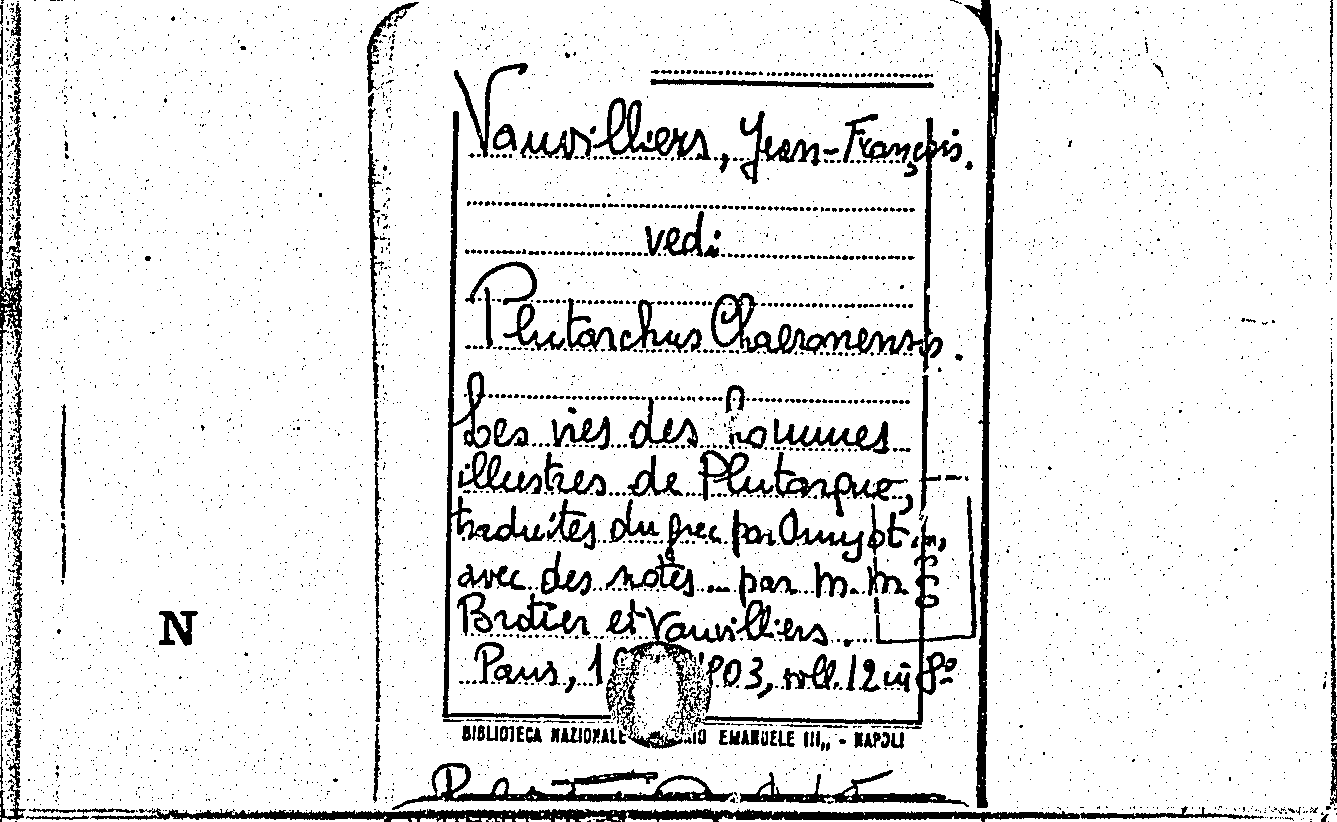 Vauvilliers, Jean-François.
vedi
Plutarchus Chaeronensis.
Les vies des hommes
illustres de Plutarque,
traduites du grec par Amyot...,
avec des notes... par M. M.
Brotier et Vauvilliers.
Paris, 1 803, voll. 12 in 8º
BIBLIOTECA NAZIONALE EMANUELE III,, - NAPOLI
N